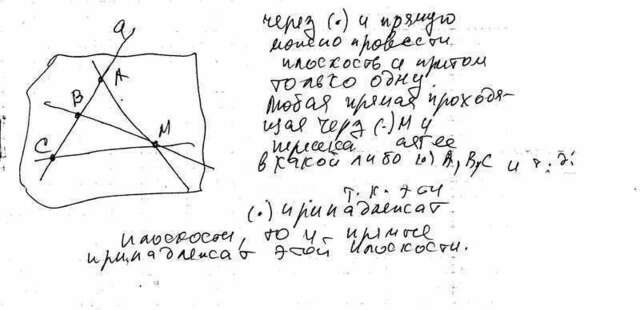 a
A
B
C
M
через (•) и прямую
можно провести
плоскость и притом
только одну.
Любая прямая проходя-
щая черз (•) M и
пересека ает ее
в какой либо (•) A, B, C и т. д.
т. к. эти
(•) принадлежат
плоскости, то и прямые
принадлежат этой плоскости.